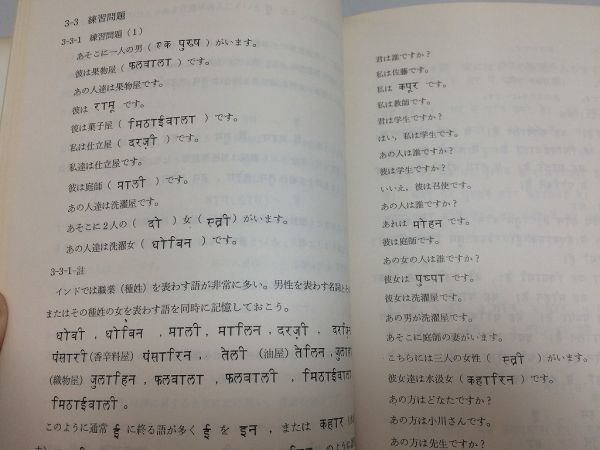 3-3 練習問題
3-3-1 練習問題 (1)
あそこに一人の男 ( एक पुरुष ) がいます。
彼は果物屋 ( फलवाला ) です。
あの人達は果物屋です。
彼は रामू です。
彼は菓子屋 ( मिठाईवाला ) です。
私は仕立屋 ( दरज़ी ) です。
私達は仕立屋です。
彼は庭師 ( माली ) です。
あの人達は洗濯屋です。
あそこに2人の ( दो ) 女 ( स्त्री ) がいます。
あの人達は洗濯女 ( धोबिन ) です。
3-3-1-註
インドでは職業 (種姓) を表わす語が非常に多い。男性を表わす名詞と
またはその種姓の女を表わす語を同時に記憶しておこう。
धोबी , धोबिन , माली , मालिन , दरज़ी ,
पंसारी (香辛料屋) पंसारिन , तेली (油屋) तेलिन ,
(織物屋) जुलाहिन , फलवाला , फलवाली , मिठाईवाला
मिठाईवाली 。
このように通常 ई に終る語が多く ई を इन , または कहार
君は誰ですか?
私は佐藤です。
私は कपूर です。
私は教師です。
君は学生ですか?
はい, 私は学生です。
あの人は誰ですか?
彼は学生ですか?
いいえ, 彼は召使です。
あの人は誰ですか?
あれは मोहन です。
彼は庭師です。
あの女の人は誰ですか?
彼女は पुष्पा です。
彼女は洗濯屋です。
あの男が洗濯屋です。
あそこに庭師の妻がいます。
こちらには三人の女性 ( स्त्री ) がいます。
彼女達は水汲女 ( कहारिन ) です。
あの方はどなたですか?
あの方は小川さんです。
あの方は先生ですか?